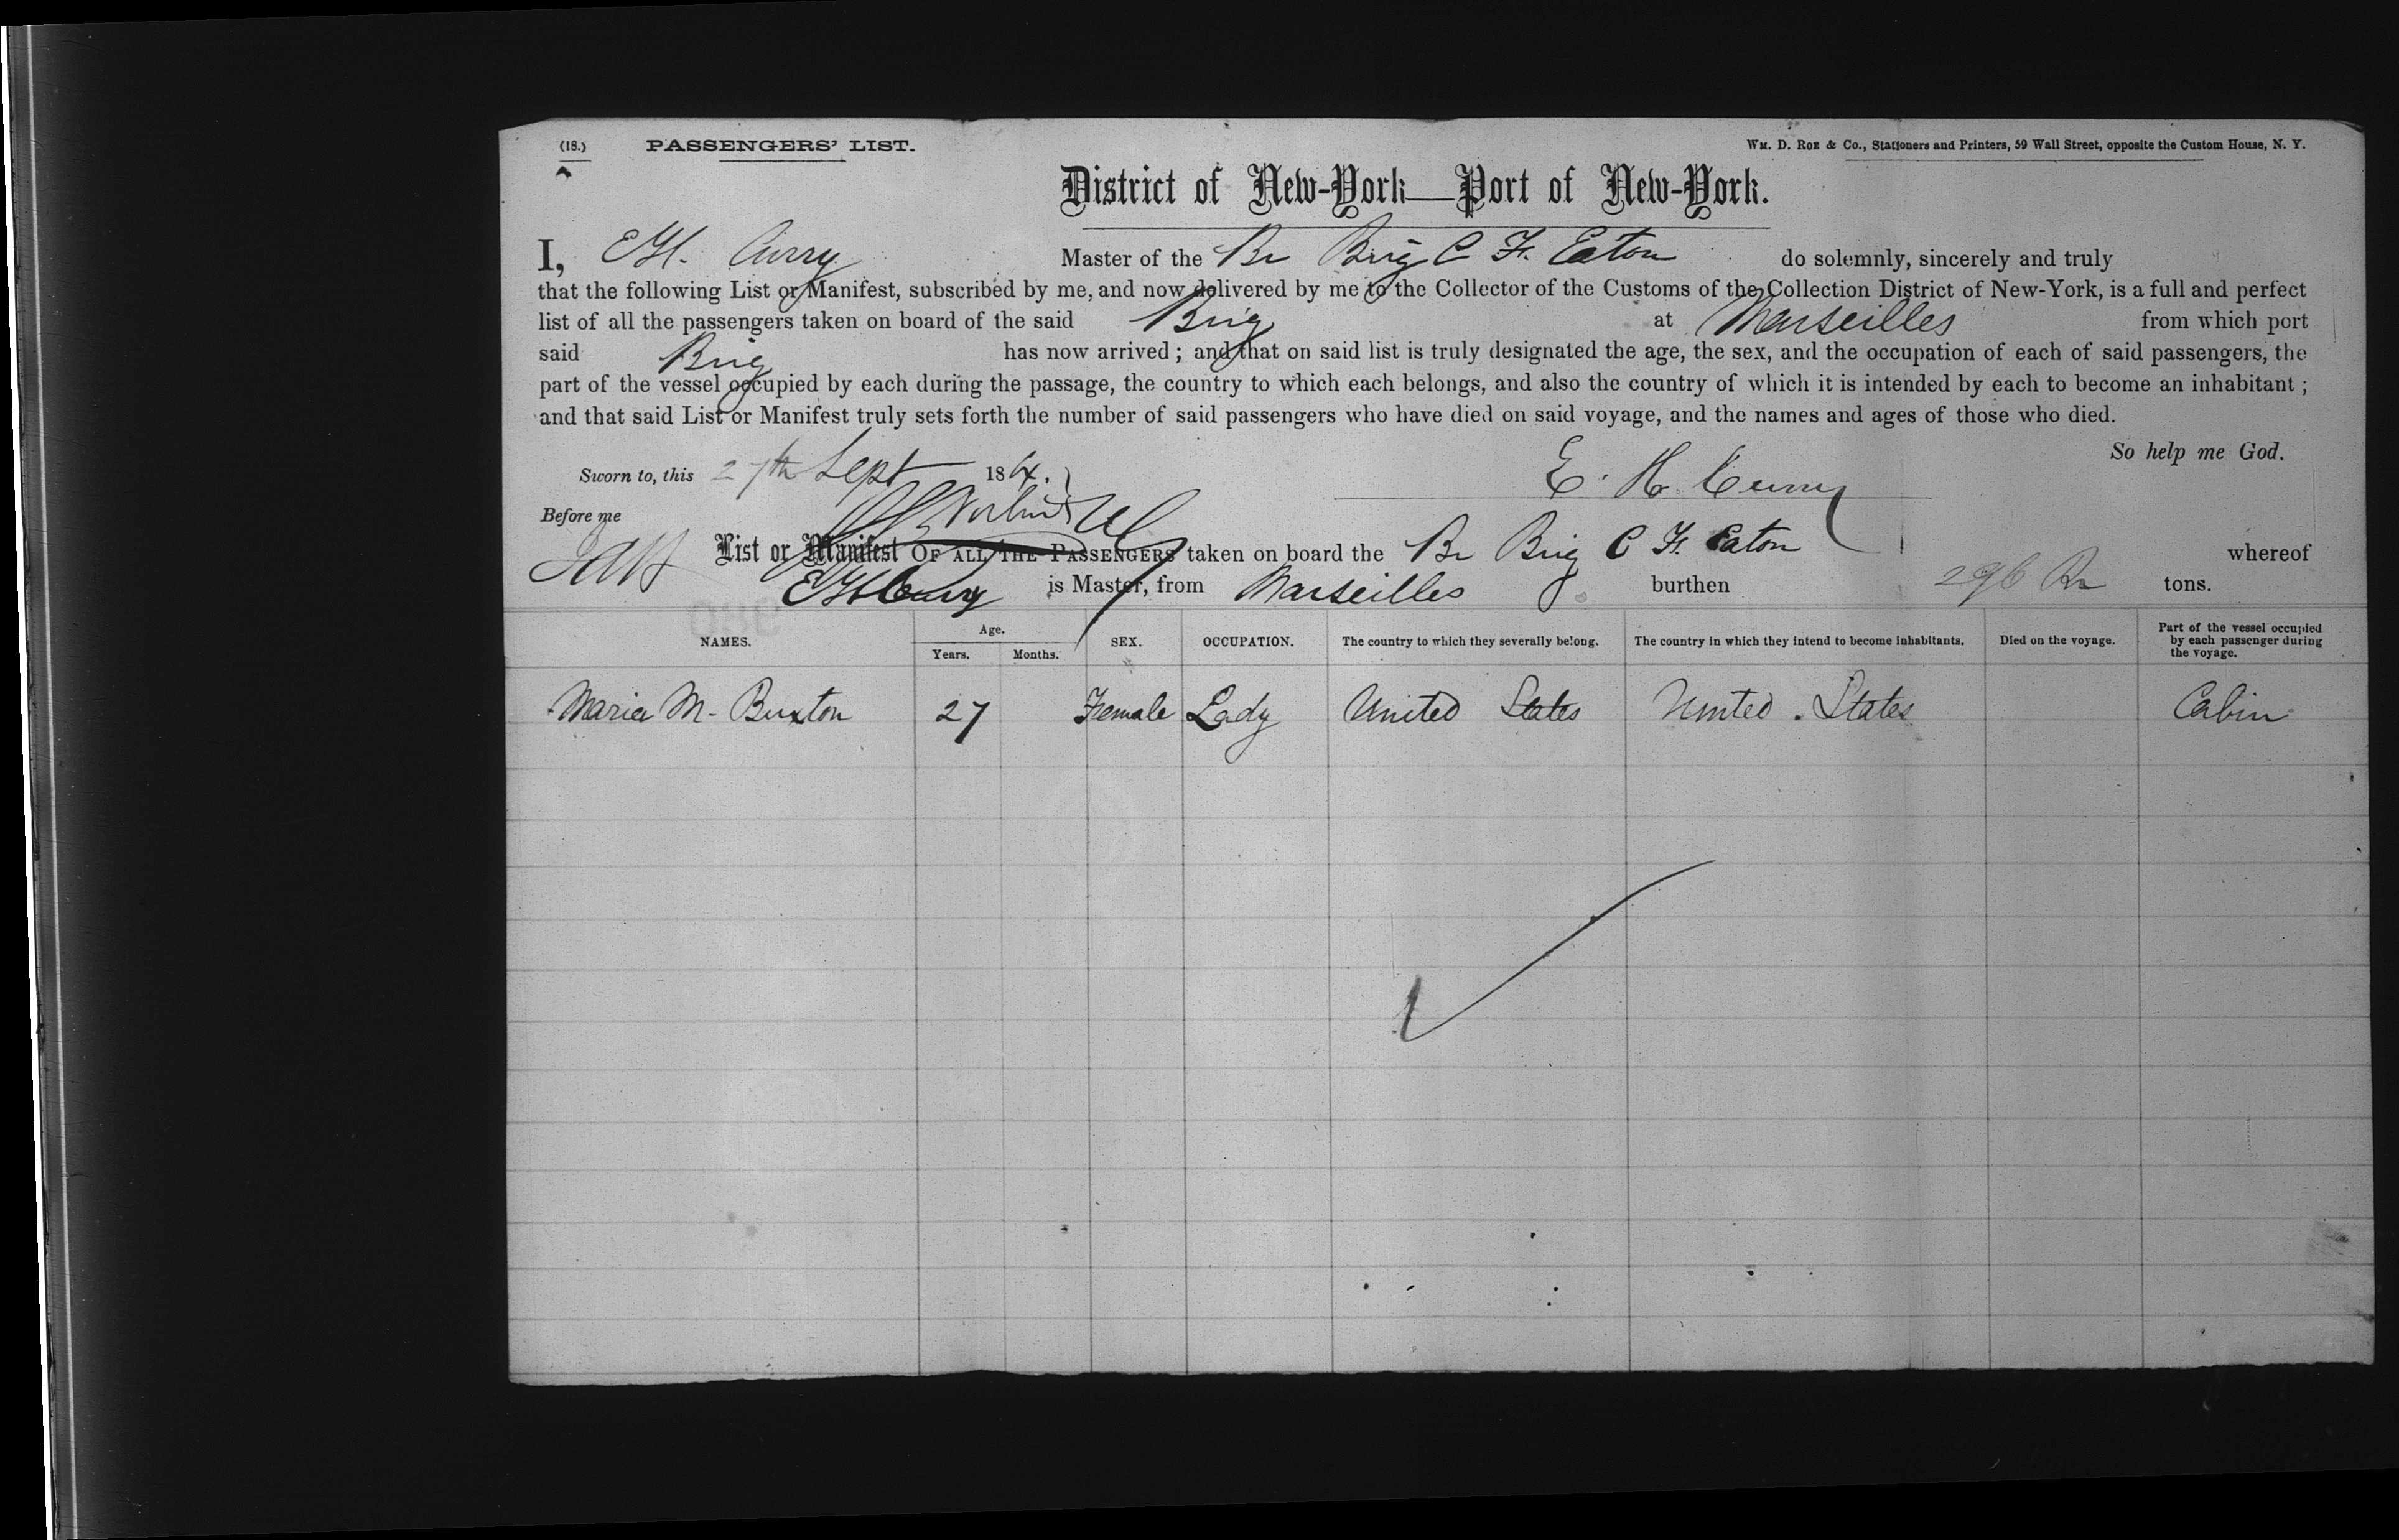 (18.) PASSENGERS' LIST. Wm. D. Roe & Co., Stationers and Printers, 59 Wall Street, opposite the Custom House, N. Y.
District of New-York—Port of New-York.
I, E H. Curry Master of the Br Brig C F. Eaton do solemnly, sincerely and truly
that the following List or Manifest, subscribed by me, and now delivered by me to the Collector of the Customs of the Collection District of New-York, is a full and perfect
list of all the passengers taken on board of the said Brig at Marseilles from which port
said Brig has now arrived; and that on said list is truly designated the age, the sex, and the occupation of each of said passengers, the
part of the vessel occupied by each during the passage, the country to which each belongs, and also the country of which it is intended by each to become an inhabitant;
and that said List or Manifest truly sets forth the number of said passengers who have died on said voyage, and the names and ages of those who died.
So help me God.
Sworn to, this 27th Sept 1864. E. H. Curry
Before me
List or Manifest OF ALL THE PASSENGERS taken on board the Br Brig C F. Eaton whereof
E H Curry is Master, from Marseilles burthen 296 tons.
NAMES. Age. Years. Months. SEX. OCCUPATION. The country to which they severally belong. The country in which they intend to become inhabitants. Died on the voyage. Part of the vessel occupied by each passenger during the voyage.
Maria M. Buxton 27 Female Lady United States United States Cabin